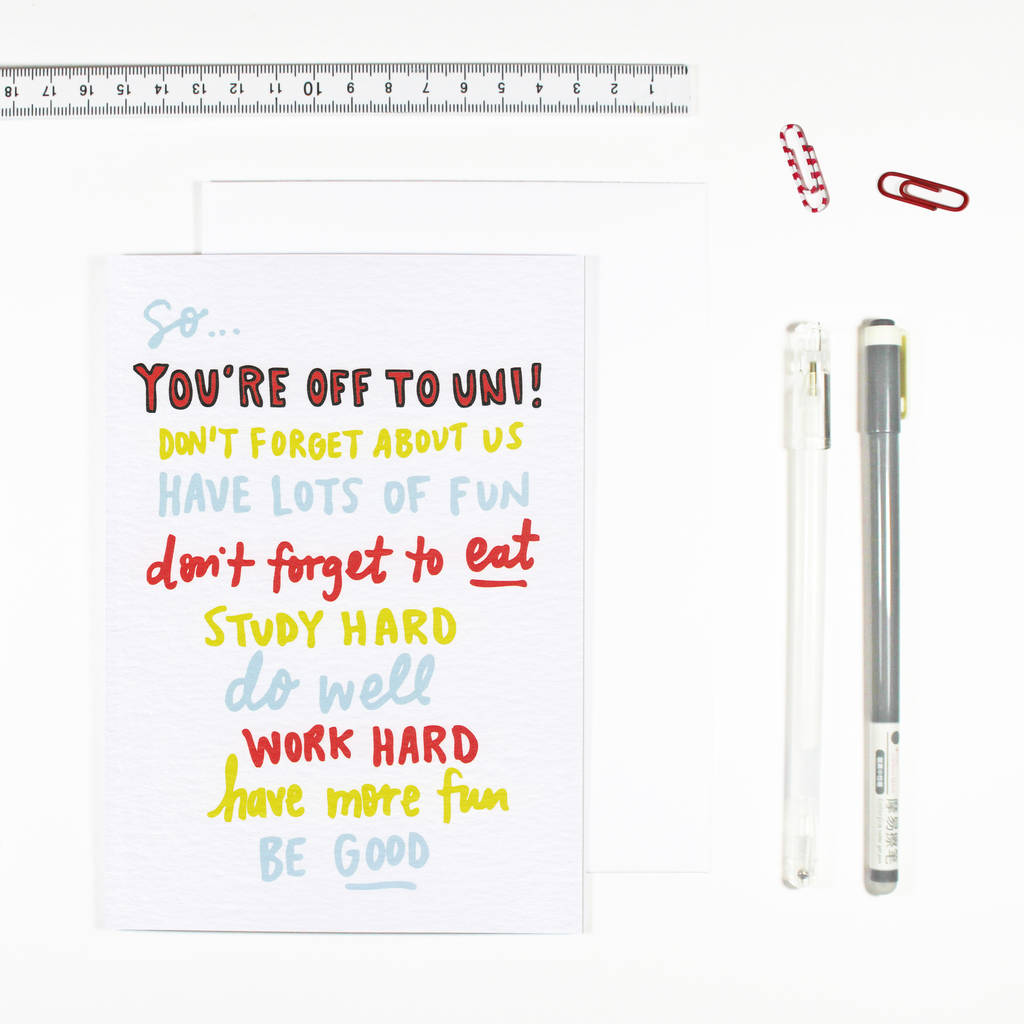 18 17 16 15 14 13 12 11 10 9 8 7 6 5 4 3 2 1
So...
YOU'RE OFF TO UNI!
DON'T FORGET ABOUT US
HAVE LOTS OF FUN
don't forget to eat
STUDY HARD
do well
WORK HARD
have more fun
BE GOOD
摩易擦笔